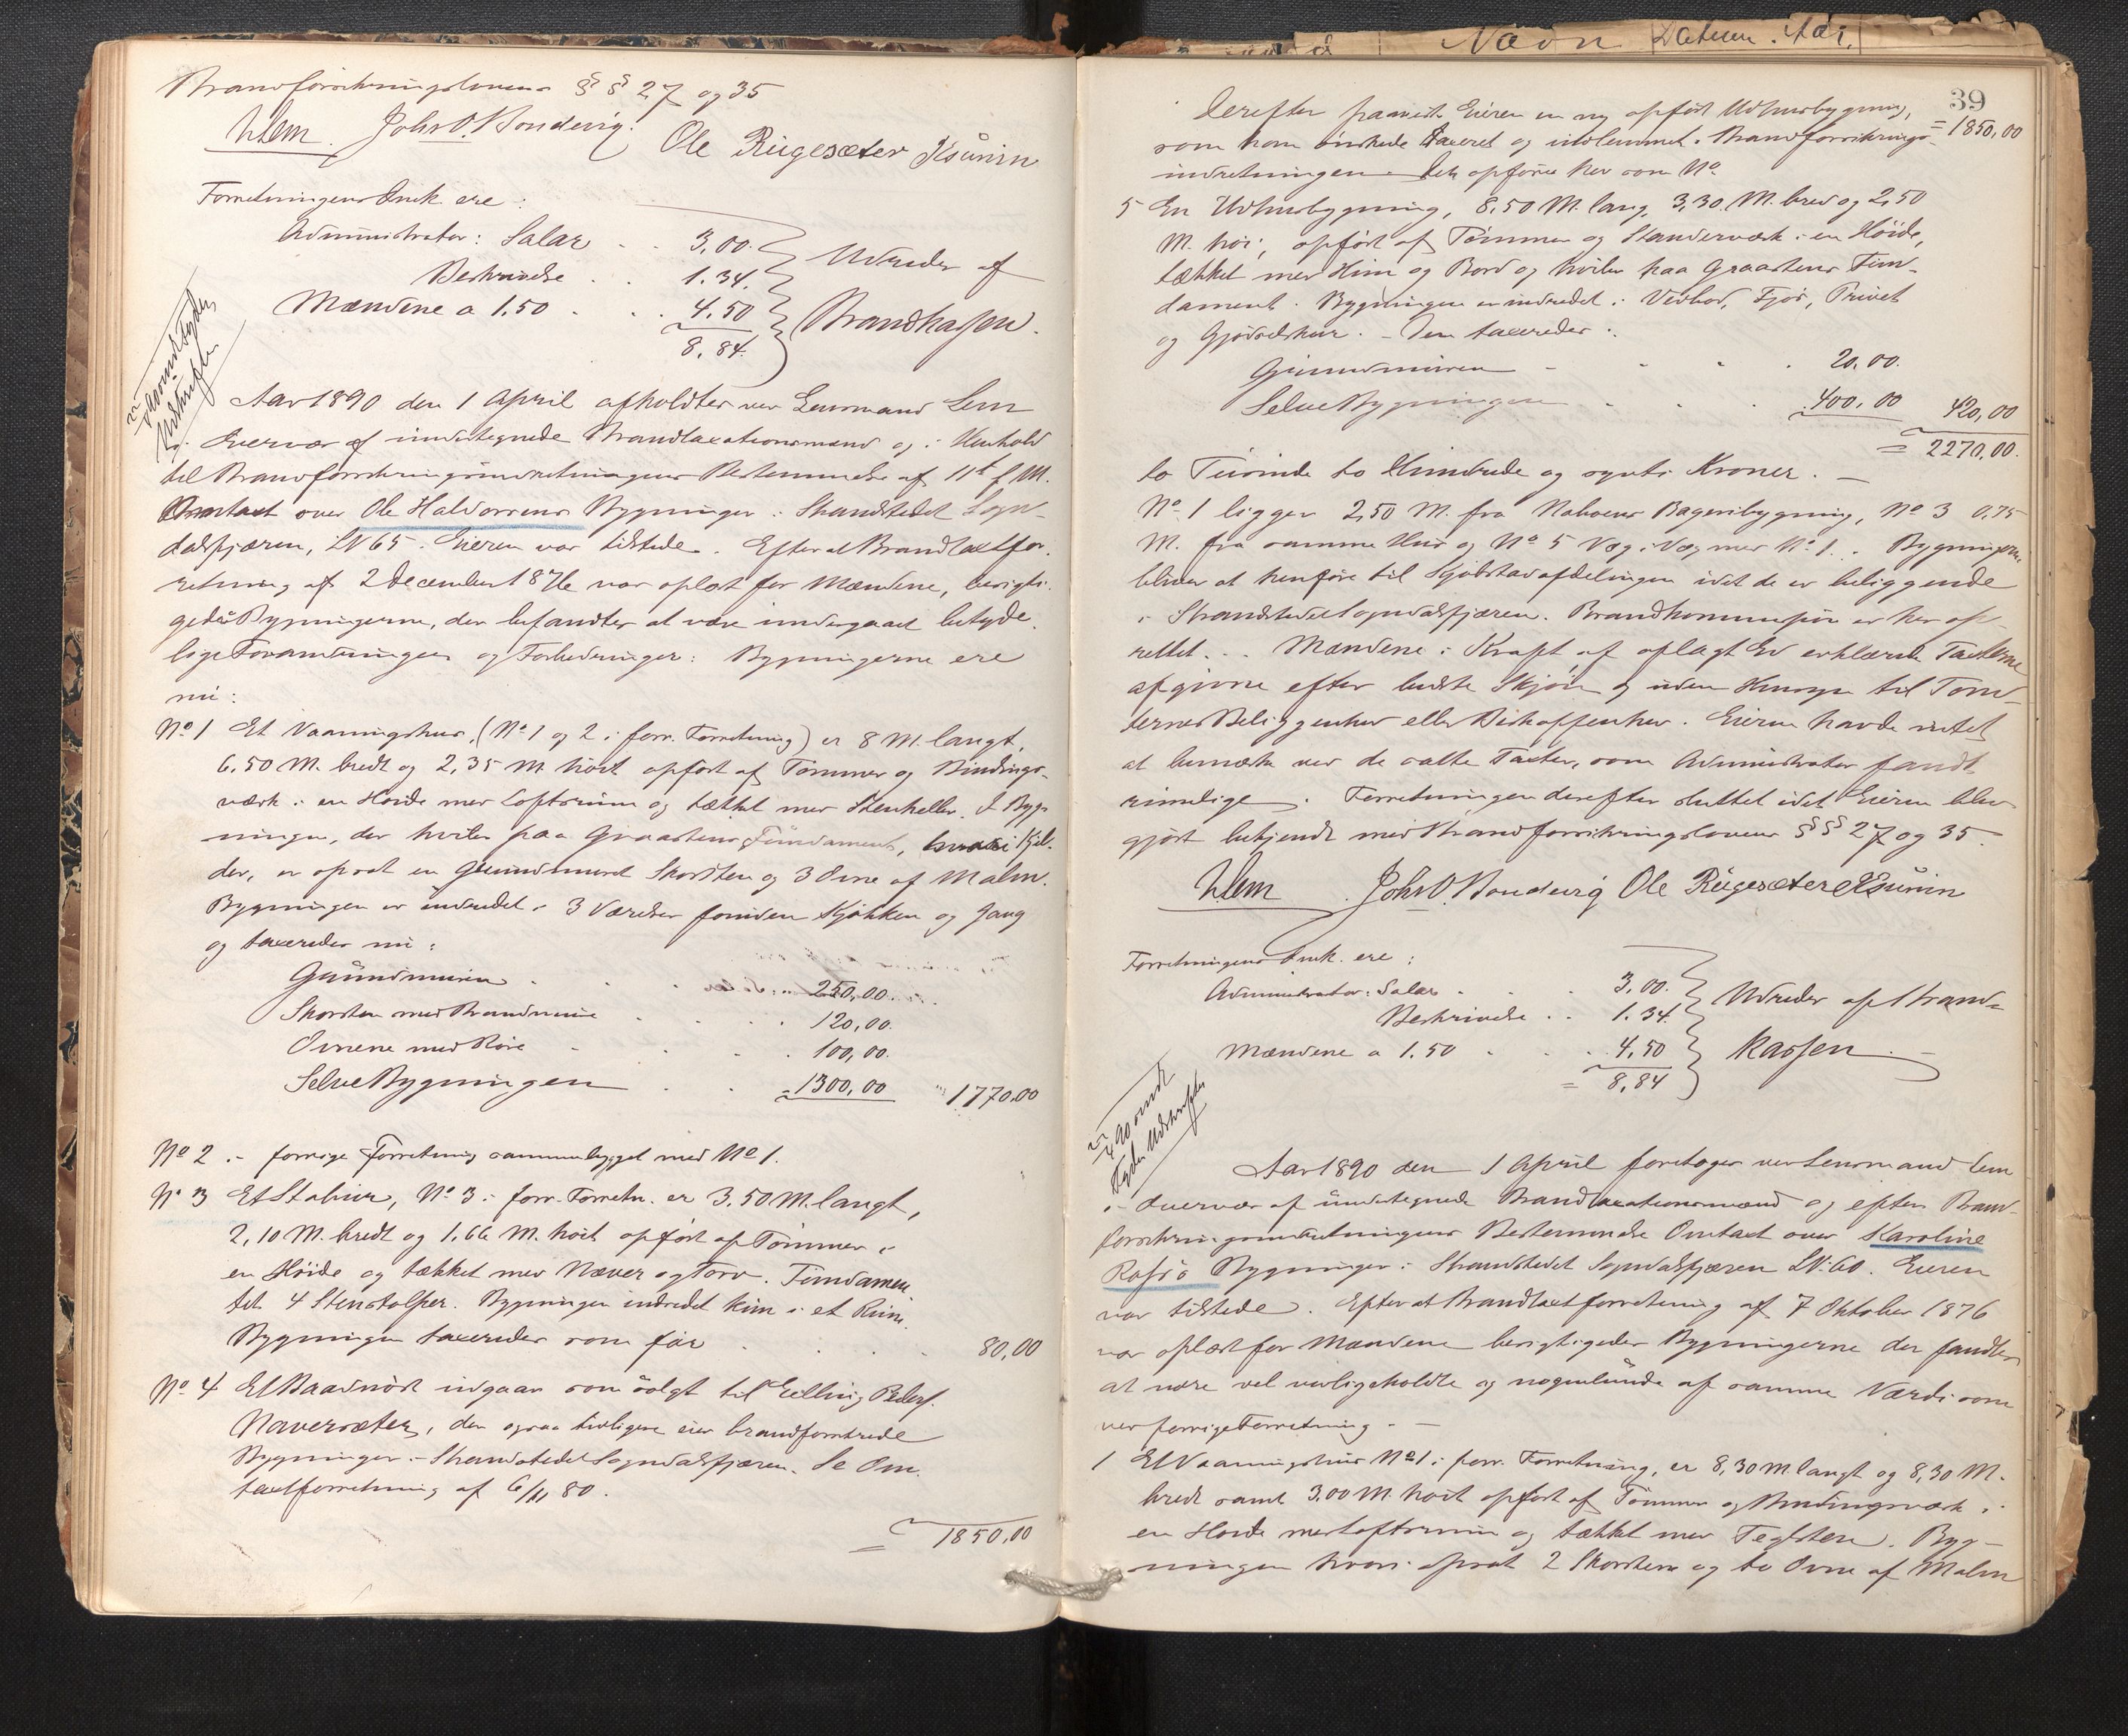 Brandforsikringslovens §§ 27 og 35
Ulem. Johs O. Bondevig. Ole Rügesæter
Forretningens Omk. ere:
Administrator: Salær . . 3,00.
Beskrivelse . . 1.34.
Mændene a 1.50 . . . 4,50
8,84.
Udredes af
Brandkassen.
Aar 1890 den 1 April afholdtes ved Lensmand Lem
i Overvær af undertegnede Brandtaxationsmænd og i Henhold
til Brandforsikringsindretningens Bestemmelse af 11te f. M.
Omtaxt over Ole Haldorsens Bygninger i Strandstedet Sogn-
dalsfjæren, LN 65. Eieren var tilstede. Efterat Brandtaxtfor-
retning af 2 December 1876 var oplæst for Mændene, besigti-
gedes Bygningerne, der befandtes at være undergaaet betyde-
lige Forandringer og Forbedringer: Bygningerne ere
nu:
No 1 Et Vaaningshus, (No 1 og 2 i forr. Forretning) er 8 M. langt,
6,50 M. bredt og 2,35 M høit opført af Tømmer og Bindings-
værk i en Høide med Loftsrum og tækket med Stenheller. I Byg-
ningen, der hviler paa Graastens Fundament, hvori Kjel-
der, er opsat en grundmuret Skorsten og 3 Ovne af Malm.
Bygningen er indredet i 3 Værelser foruden Kjøkken og Gang
og taxeredes nu:
Grundmuren . . . 250,00.
Skorsten med Brandmure . . . 120,00.
Ovnene med Rør . . . 100,00.
Selve Bygningen . . 1300,00 1770.00
No 2 i forrige Forretning sammenbygget med No 1.
No 3 Et Stabur, No 3 i forr. Forretn. er 3,50 M. langt,
2,10 M. bredt og 1,66 M. høit opført af Tømmer i
en Høide og tækket med Næver og Torv. Fundamen-
tet 4 Stenstolper. Bygningen indredet kun i et Rum.
Bygningen taxeredes som før . . . 80,00
No 4 Et Baadnøst udgaar som solgt til Elling Peders.
Naversæter, der ogsaa tidligere eier brandforsikrede
Bygninger i Strandstedet Sogndalsfjæren. Se Om-
taxtforretning af 6/11 80.
= 1850,00
Nævn Datum. Aar.
39
Derefter fremviste Eieren en ny opført Udhusbygning, = 1850,00
som han ønskede taxeret og indlemmet i Brandforsikrings-
indretningen. Den opføres her som No
5 En Udhusbygning, 8,50 M. lang, 3,30 M. bred og 2,50
M. høi, opført af Tømmer og Stenderværk i en Høide,
tækket med Hun og Bord og hviler paa Graastens Fun-
dament. Bygningen er indredet i Vedbod, Fjøs, Privet
og Gjødselskur. – Den taxeredes:
Grundmuren . . . 20,00.
Selve Bygningen . . . 400,00 420,00
= 2270,00.
to Tusinde to Hundrede og sytti Kroner. –
No 1 ligger 2,50 M. fra Naboens Bageribygning, No 3 0,75
M. fra samme Hus og No 5 Væg i Væg med No 1. . Bygningerne
bliver at henføre til Kjøbstadafdelingen idet de er beliggende
i Strandstedet Sogndalsfjæren. Brandkommission er her op-
rettet. . . Mændene i Kraft af aflagt Ed erklærede Taxterne
afgivne efter bedste Skjøn og uden Hensyn til Tom-
ternes Beliggenhed eller Beskaffenhed. Eieren havde intet
at bemærke ved de satte Taxter, som Administrator fandt
rimelige. Forretningen derefter sluttet idet Eieren blev
gjort bekjendt med Brandforsikringslovens §§ 27 og 35.
Ulem Johs O. Bondevig Ole Rügesæter
Forretningens Omk. ere:
Administrator: Salær . . . 3,00.
Beskrivelse . . 1.34.
Mændene a 1.50 . . . 4,50
= 8,84
Udredes af Brand-
kassen.
Aar 1890 den 1 April foretoges ved Lensmand Lem
i Overvær af undertegnede Brandtaxationsmænd og efter Brand-
forsikringsindretningens Bestemmelse Omtaxt over Karoline
Bygninger i Strandstedet Sogndalsfjæren LN: 60. Eieren
var tilstede. Efterat Brandtaxtforretning af 7 Oktober 1876
var oplæst for Mændene besigtigedes Bygningerne der fandtes
at være vel vedligeholdte og nogenlunde af samme Værdi som
ved forrige Forretning. –
1 Et Vaaningshus No 1 i forr. Forretning, er 8,30 M langt og 8,30 M.
bredt samt 3.00 M. høit opført af Tømmer og Bindingsværk i
en Høide med Loftsrum og tækket med Teglsten. Byg-
ningen hvori opsat 2 Skorstene og to Ovne af Malm